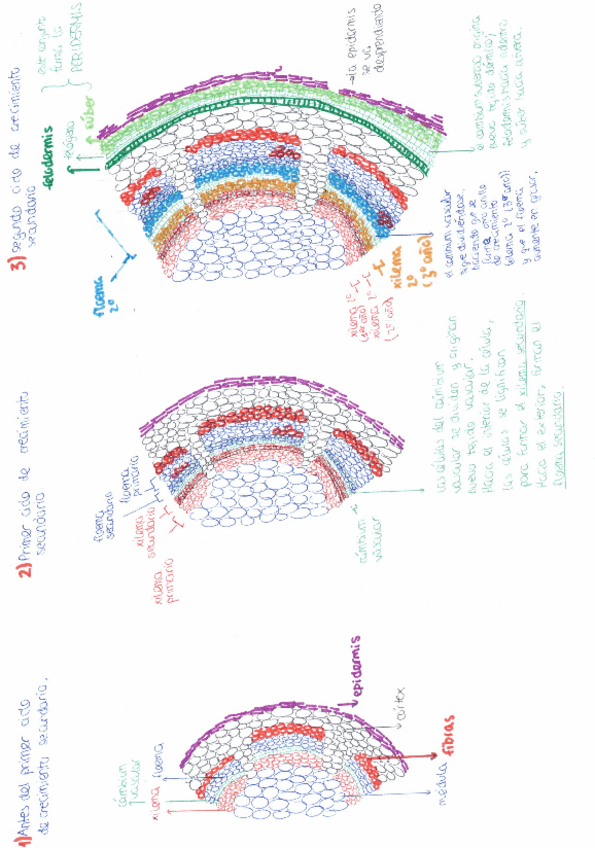 1) Antes del primer ciclo
de crecimiento secundario.
cámbium
vascular
xilema
floema
epidermis
córtex
fibras
médula
2) Primer ciclo de crecimiento
secundario
floema
secundario
floema
primario
xilema
secundario
xilema
primario
cámbium
vascular
Las células del cámbium
vascular se dividen y originan
nuevo tejido vascular.
Hacia el interior de la célula,
las células se lignifican
para formar el xilema secundario.
Hacia el exterior, forman el
floema secundario.
3) Segundo ciclo de crecimiento
secundario
felodermis
felógeno
súber
este conjunto
forma la
PERIDERMIS
→la epidermis
se va
desprendiendo
floema
2º
xilema 2º
xilema 2º
(2º año)
xilema
2º
(3º año)
el cambium vascular
sigue dividiéndose,
haciendo que se
forme otro anillo
de crecimiento
(xilema 2º (3º año))
y que el floema
aumente en grosor.
el cambium suberoso origina
nuevo tejido dérmico,
felodermis hacia adentro
y súber hacia afuera.